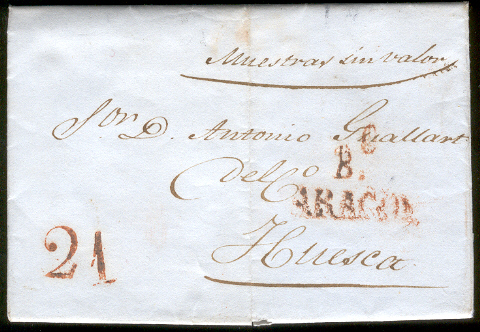 Muestras sin valor
Sor D. Antonio Guallart
del Co
Bo.
ARAGON
Huesca
21